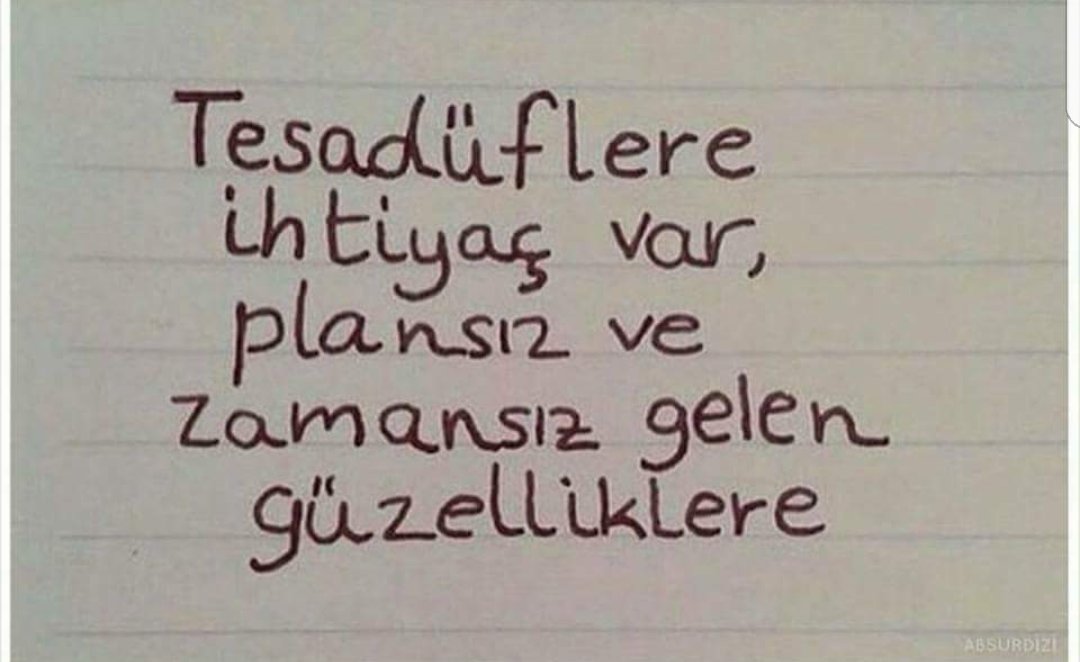 Tesadüflere
ihtiyaç var,
plansız ve
zamansız gelen
güzelliklere
ABSURDIZI